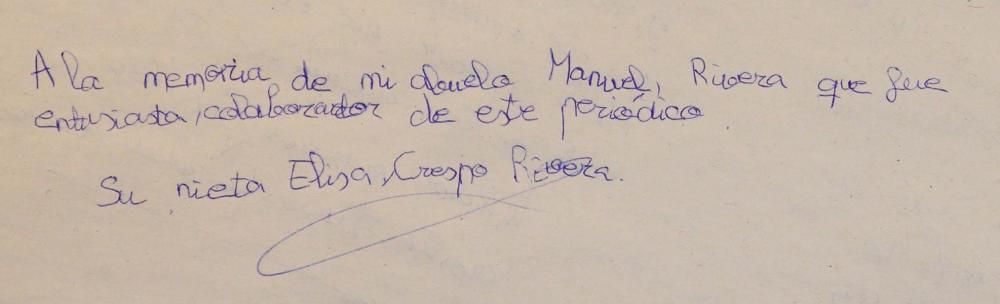 A la memoria de mi abuelo Manuel, Rivera que fue
entusiasta, colaborador de este periódico
Su nieta Elisa, Crespo Rivera.